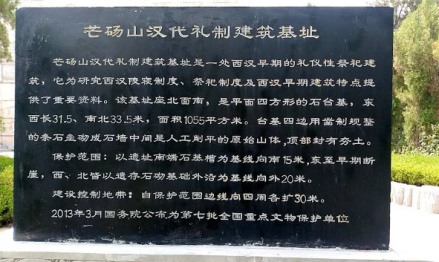 芒砀山汉代礼制建筑基址
芒砀山汉代礼制建筑基址是一处西汉早期的礼仪性祭祀建
筑，它为研究西汉陵寝制度、祭祀制度及西汉早期建筑特点提
供了重要资料。该基址座北面南，是平面四方形的石台基，东
西长31.5、南北33.5米，面积1055平方米。台基四边用凿制规整
的条石垒砌成石墙中间是人工削平的原始山体，顶部封有夯土。
保护范围：以遗址南端石基槽为基线向南15米，东至早期断
崖，西、北皆以遗存石砌基础外沿为基线向外20米。
建设控制地带：自保护范围边线向四周各扩30米。
2013年3月国务院公布为第七批全国重点文物保护单位